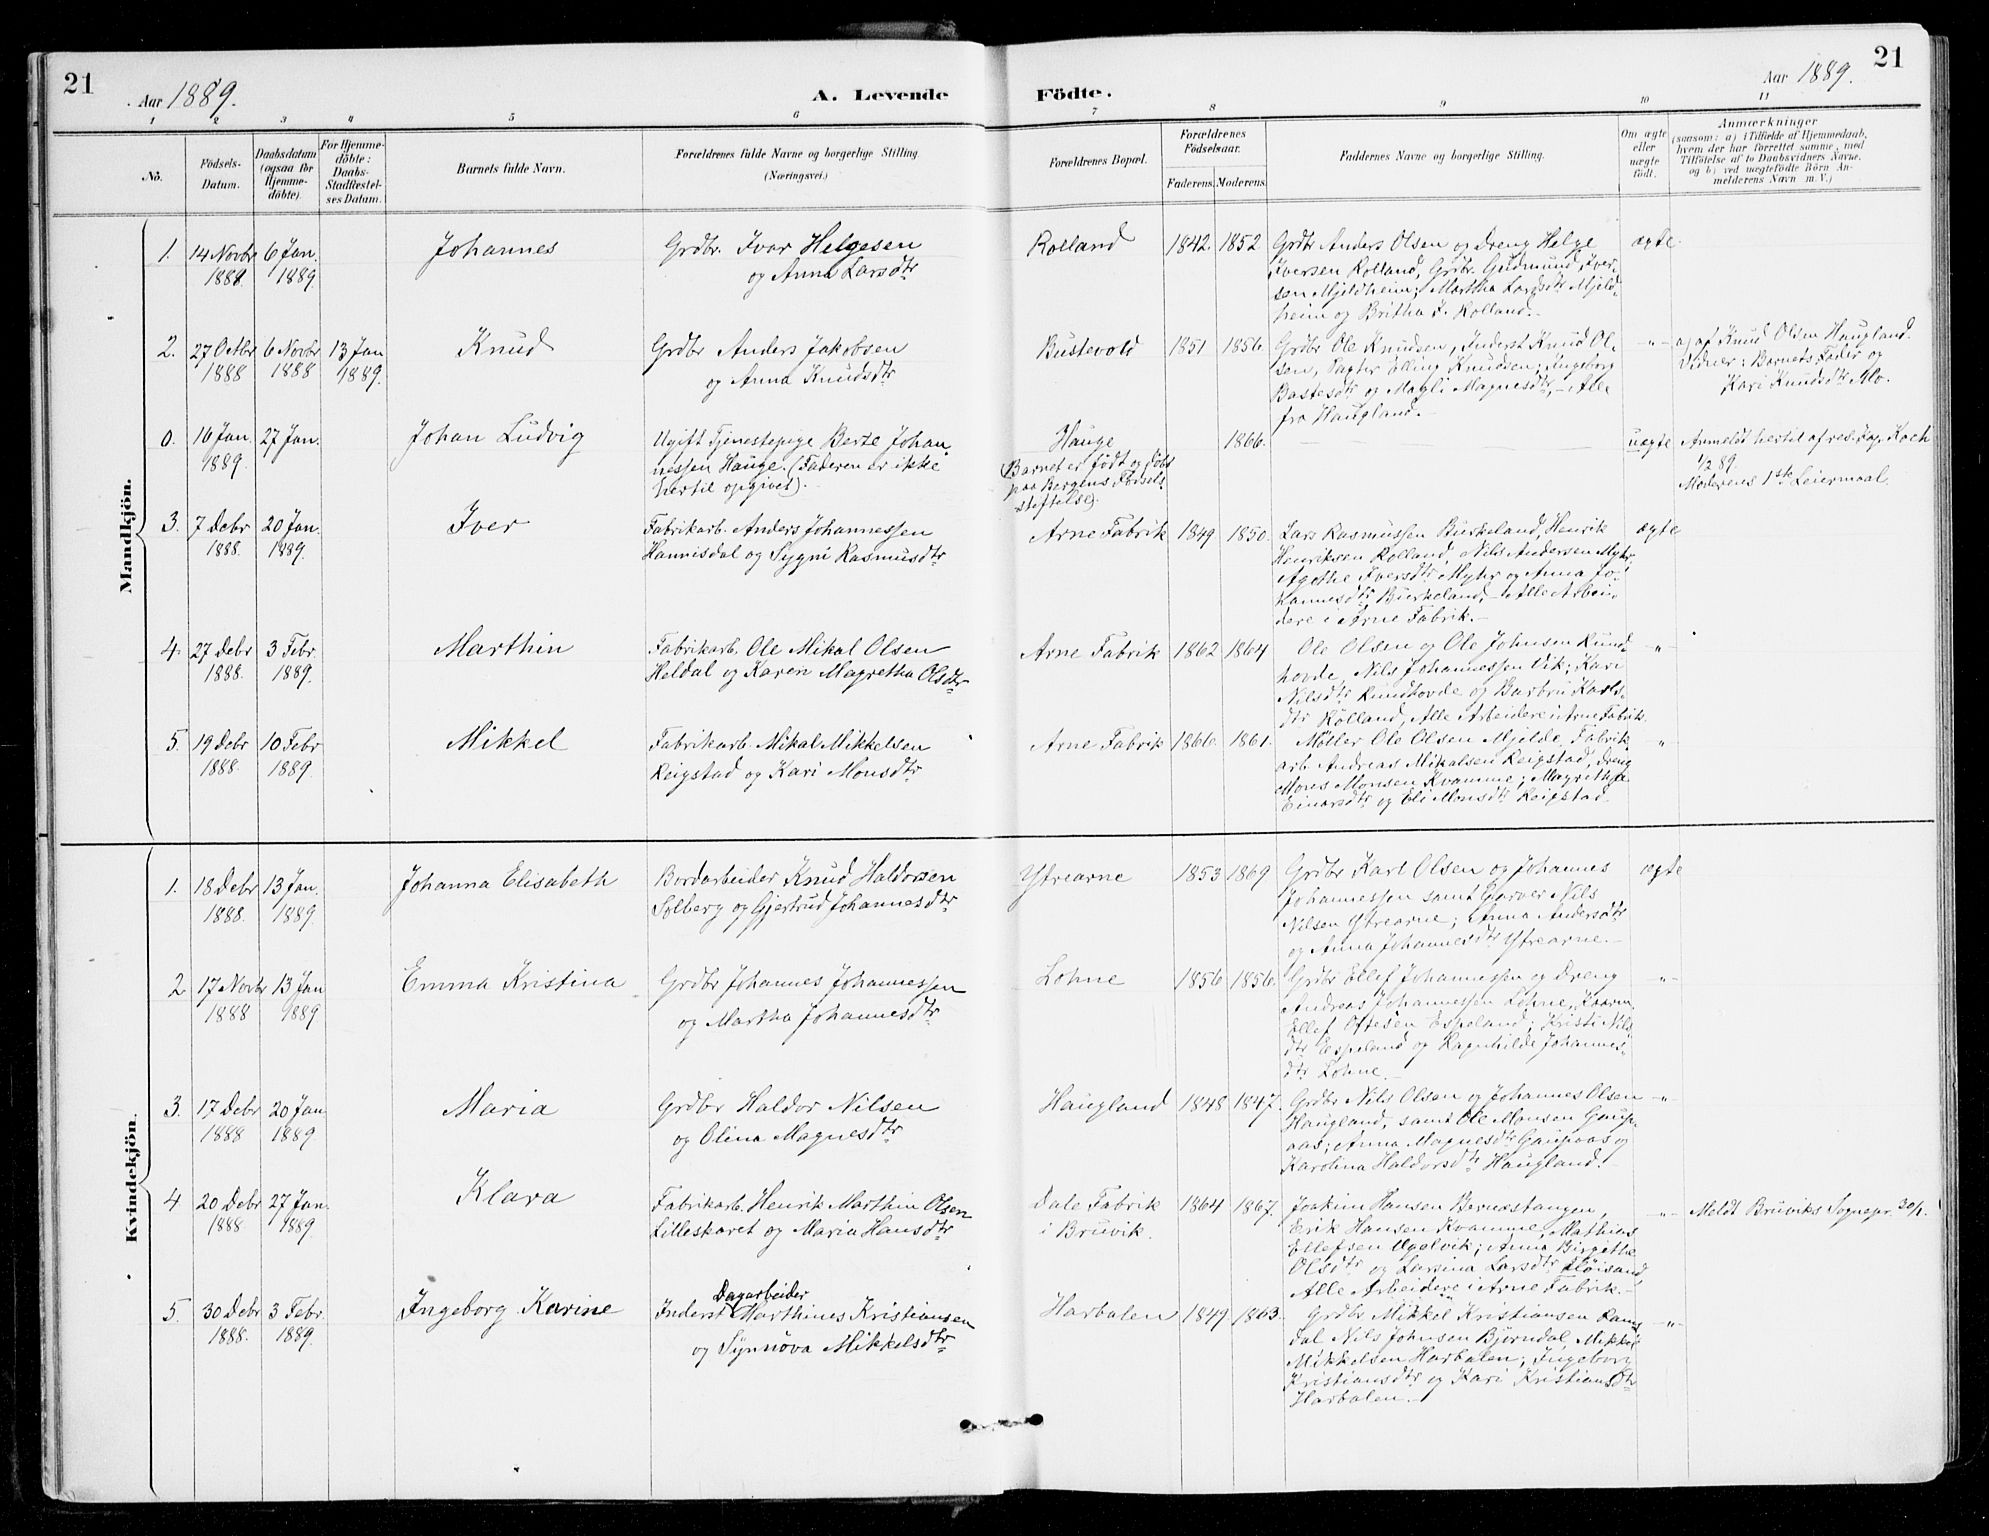 21
Aar 1889.
A. Levende
Födte.
Aar 1889.
21
1 2 3 4 5 6 7 8 9 10 11
No.
Födsels-
Datum.
Daabsdatum
(ogsaa för
Hjemme-
döbte).
For Hjemme-
döbte:
Daabs-
Stadfæstel-
ses Datum.
Barnets fulde Navn.
Forældrenes fulde Navne og borgerlige Stilling.
(Næringsvei.)
Forældrenes Bopæl.
Forældrenes
Födselsaar.
Faderens. Moderens.
Faddernes Navne og borgerlige Stilling.
Om ægte
eller
uægte
födt.
Anmærkninger
(saasom: a) i Tilfælde af Hjemmedaab,
hvem der har forrettet samme, med
Tilföielse af to Daabsvidners Navne,
og b) ved uægtefödte Börn An-
melderens Navn m. V.)
Mandkjön.
1.
14 Novbr
1888
6 Jan.
1889
Johannes
Grdbr. Ivar Helgesen
og Anna Larsdtr
Rolland
1842. 1852
Grdbr Anders Olsen og Dreng Helge
Iversen Rolland, Grdbr. Gudmund Iver-
sen Mjeldheim; Martha Larsdtr Mjeld-
heim og Britha I. Rolland.-
ægte.
2.
27 Octbr
1888
6 Novbr
1888
13 Jan
1889.
Knud
Grdbr Anders Jakobsen
og Anna Knudsdtr
Bustevold
1851 1856.
Grdbr Ole Knudsen, Inderst Knud Ol-
sen, Pagter Elling Knudsen; Ingeborg
Bastesdtr og Magli Magnesdtr,- Alle
fra Haugland.-
-"-
a) af Knud Olsen Haugland.
Vidner: Barnets Fader og
Kari Knudsdtr Mo.
0.
16 Jan.
1889.
27 Jan.
Johan Ludvig
Ugift Tjenestepige Berte Johan-
nessen Hauge. (Faderen er ikke
hertil opgivet).
Hauge
(Barnet er født og døbt
paa Bergens Fødsels-
stiftelse).
1866.
uægte
Anmeldt hertil af res. Kap. Koch
1/2 89.
Moderens 1ste Leiermaal.
3.
7 Debr
1888.
20 Jan.
1889.
Iver
Fabrikarb. Anders Johannessen
Hannisdal og Sygni Rasmusdtr
Arne Fabrik
1849 1850.
Lars Rasmussen Burkeland, Henrik
Henriksen Rolland, Nils Andersen Myhr,
Agathe Iversdtr Myhr og Anna Jo-
hannesdtr Burkeland,- Alle Arbei-
dere i Arne Fabrik.-
ægte
4.
27 Debr
1888.
3 Febr.
1889.
Marthin
Fabrikarb. Ole Mikal Olsen
Heldal og Karen Magretha Olsdtr
Arne Fabrik
1862 1864
Ole Olsen og Ole Johnsen Rund-
hovde, Nils Johannessen Vik; Kari
Nilsdtr Rundhovde og Barbru Karls-
dtr Rolland, Alle Arbeidere i Arne Fabrik.
-"-
5.
19 Debr
1888.
10 Febr
1889.
Mikkel
Fabrikarb. Mikal Mikkelsen
Reigstad og Kari Monsdtr
Arne Fabrik
1866. 1861.
Møller Ole Olsen Mjelde, Fabrik-
arb Andreas Mikalsen Reigstad, Dreng
Mons Monsen Kvamme; Magretha
Einarsdtr og Eli Monsdtr Reigstad.
-"-
Kvindekjön.
1.
18 Debr
1888.
13 Jan.
1889.
Johanna Elisabeth
Bordarbeider Knud Haldorsen
Solberg og Gjertrud Johannesdtr
Ytrearne
1853 1869
Grdbr Karl Olsen og Johannes
Johannessen samt Garver Nils
Nilsen Ytrearne; Anna Andersdtr
og Anna Johannesdtr Ytrearne.-
ægte
2
17 Novbr
1888
13 Jan
1889
Emma Kristina
Grdbr Johannes Johannessen
og Martha Johannesdtr
Lohne
1856 1856.
Grdbr Ellef Johannessen og Dreng
Andreas Johannessen Lohne, Kaarm.
Ellef Oftesen Espeland; Kristi Nils-
dtr Espeland og Ragnhilde Johannes-
dtr Lohne.-
-"-
3.
17 Debr
1888
20 Jan
1889.
Maria
Grdbr Haldor Nilsen
og Olina Magnesdtr
Haugland
1848 1847.
Grdbr Nils Olsen og Johannes Olsen
Haugland, samt Ole Monsen Gaup-
aas; Anna Magnesdtr Gaupaas og
Karolina Haldorsdtr Haugland.-
-"-
4
20 Debr
1888
27 Jan.
1889
Klara
Fabrikarb. Henrik Marthin Olsen
Lilleskaret og Maria Hansdtr
Dale Fabrik
i Bruvik.
1864 1867.
Joakim Hansen Bernæstangen,
Erik Hansen Kvamme, Mathias
Ellefsen Ugelvik; Anna Birgithe
Olsdtr og Larsina Larsdtr Høisand,
Alle Arbeidere i Arne Fabrik.-
-"-
Meldt Bruviks Sognepr. 30/1.
5
30 Debr
1888.
3 Febr.
1889.
Ingeborg Karine
Dagarbeider
Inderst Marthines Kristiansen
og Synnøva Mikkelsdtr
Harbalen
1849 1863.
Grdbr Mikkel Kristiansen Rams-
dal Nils Johnsen Bjørndal Mikkel
Mikkelsen Harbalen; Ingeborg
Kristiansdtr og Kari Kristiansdtr
Harbalen.-
-"-